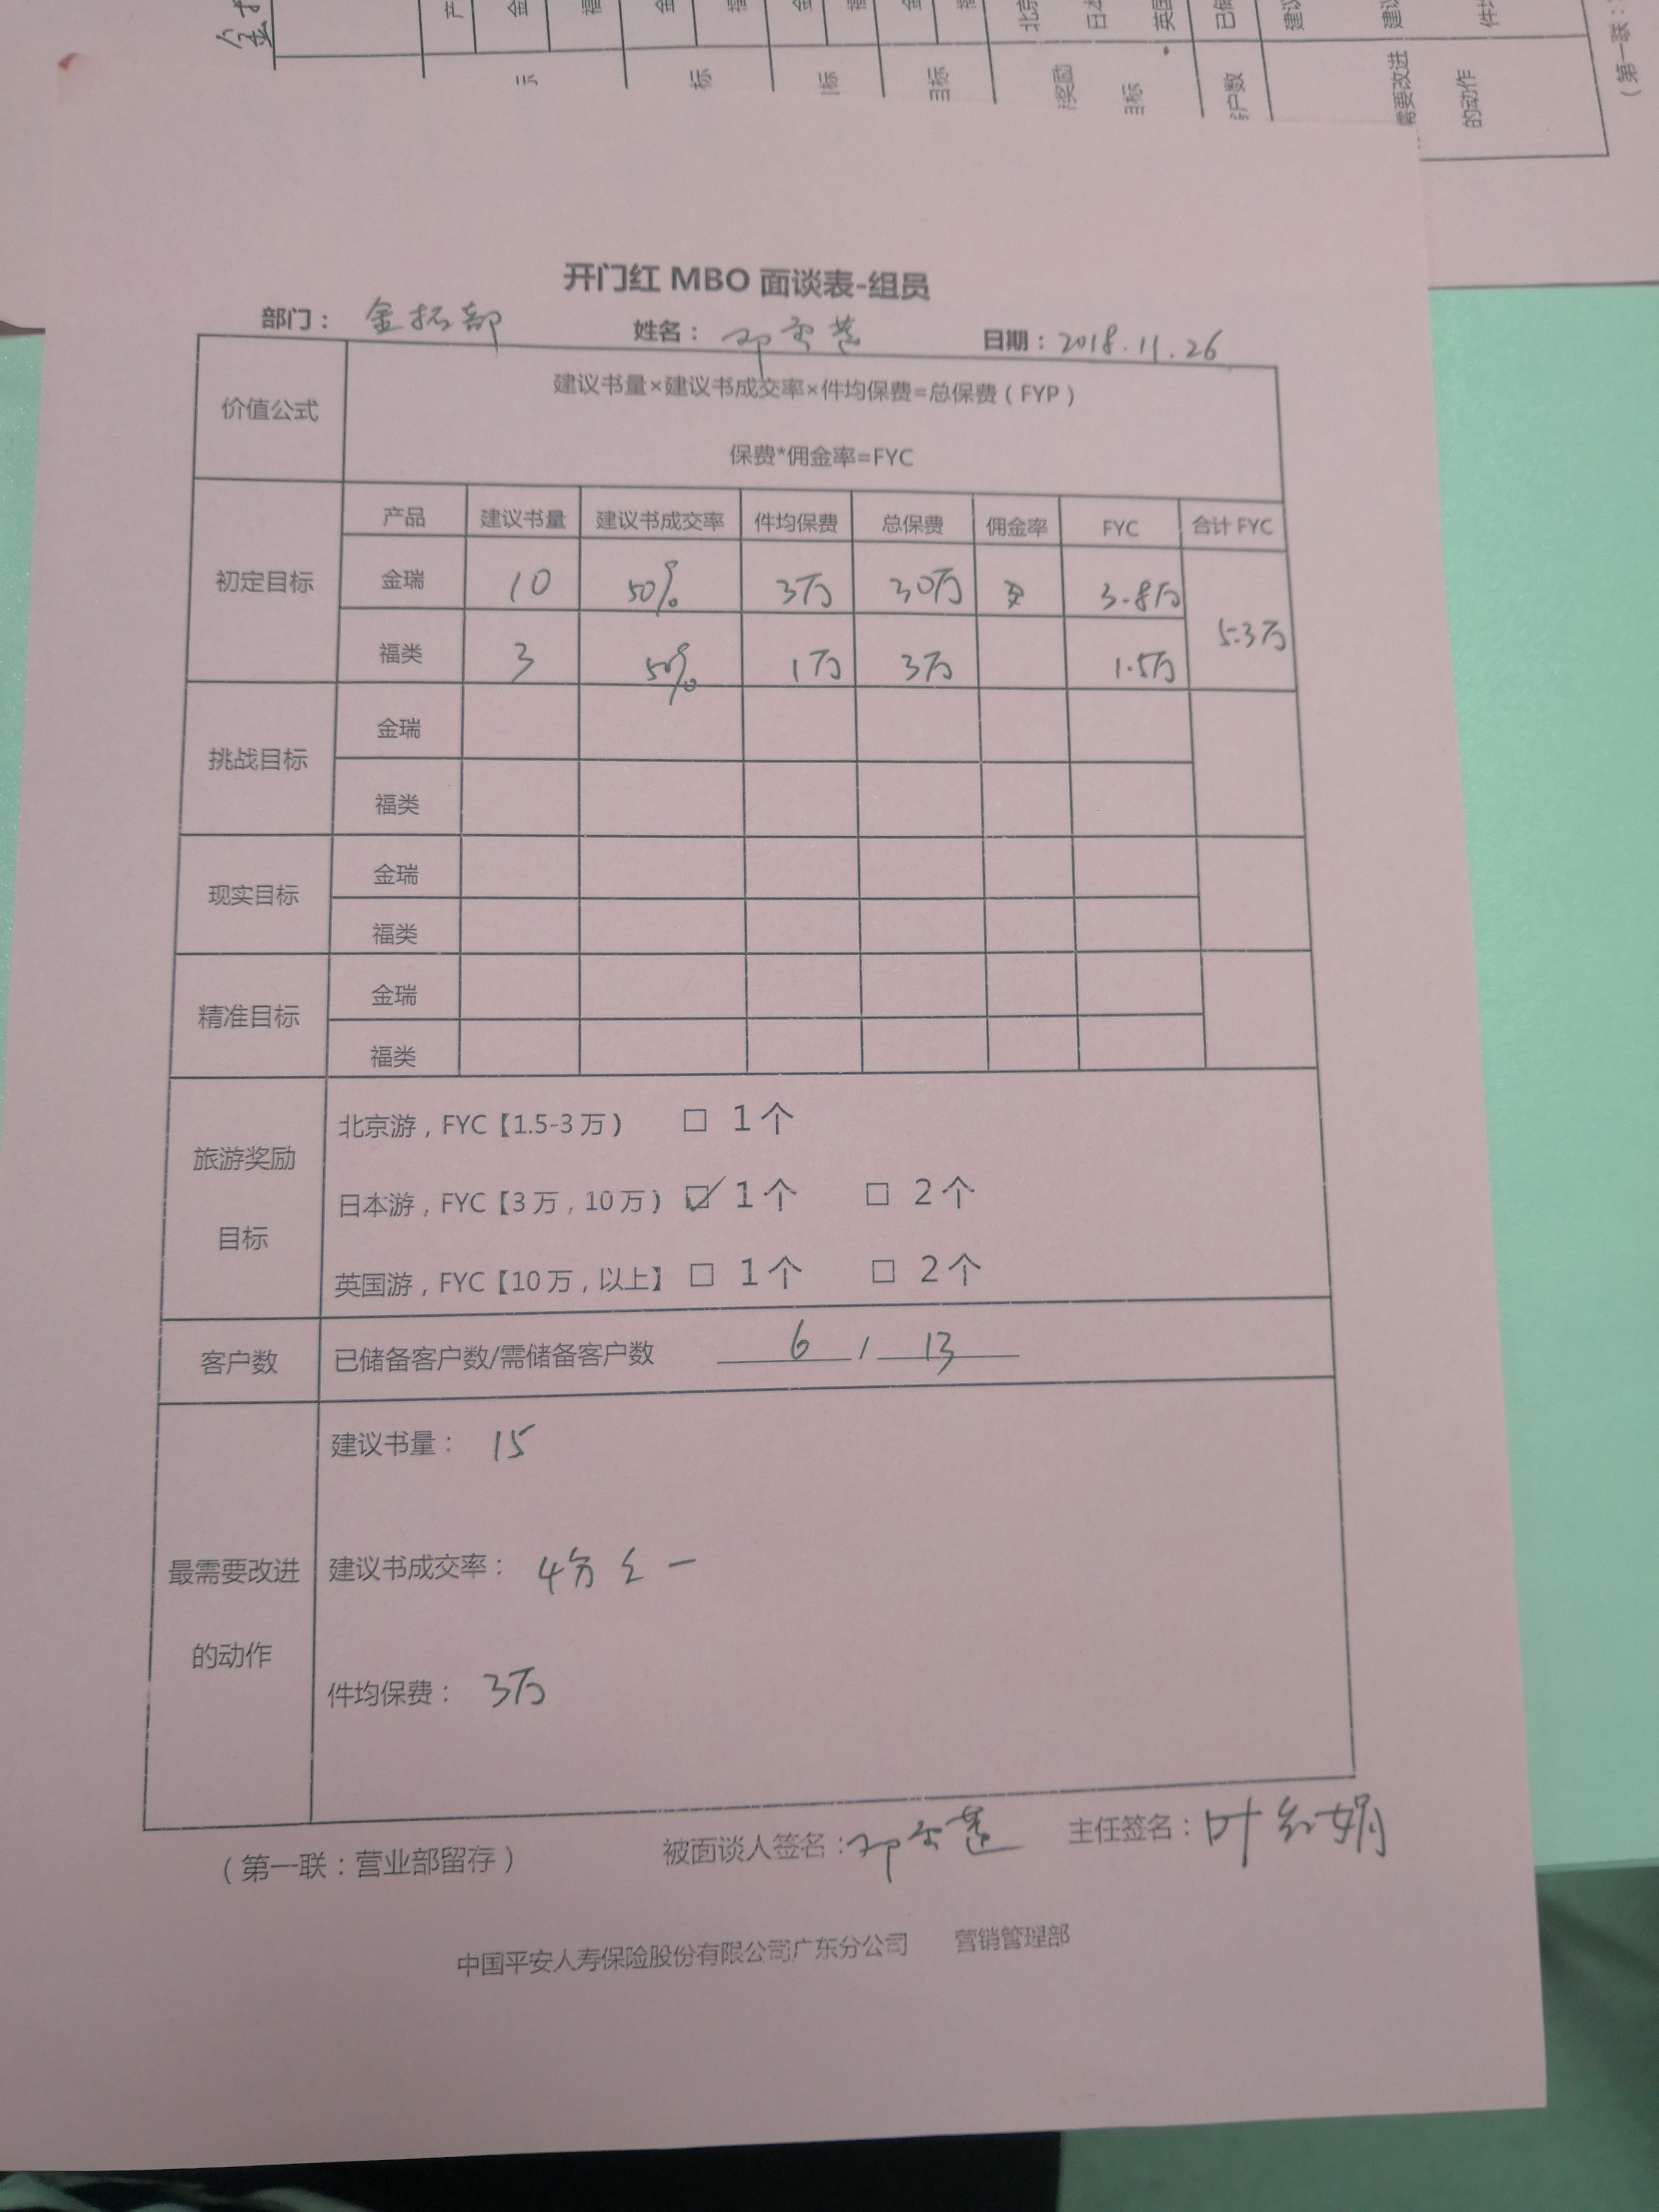 开门红 MBO 面谈表-组员
部门： 金拓部 姓名： 日期：2018.11.26
价值公式 建议书量×建议书成交率×件均保费=总保费（FYP）
保费*佣金率=FYC
产品 建议书量 建议书成交率 件均保费 总保费 佣金率 FYC 合计 FYC
初定目标 金瑞 10 50% 3万 30万 3.8万 5.3万
福类 3 50% 1万 3万 1.5万
挑战目标 金瑞
福类
现实目标 金瑞
福类
精准目标 金瑞
福类
旅游奖励目标
北京游，FYC【1.5-3万） □ 1个
日本游，FYC【3万，10万）☑ 1个 □ 2个
英国游，FYC【10万，以上】□ 1个 □ 2个
客户数 已储备客户数/需储备客户数 6 / 13
最需要改进的动作
建议书量： 15
建议书成交率： 4分之一
件均保费： 3万
（第一联：营业部留存） 被面谈人签名： 主任签名：叶红娟
中国平安人寿保险股份有限公司广东分公司 营销管理部